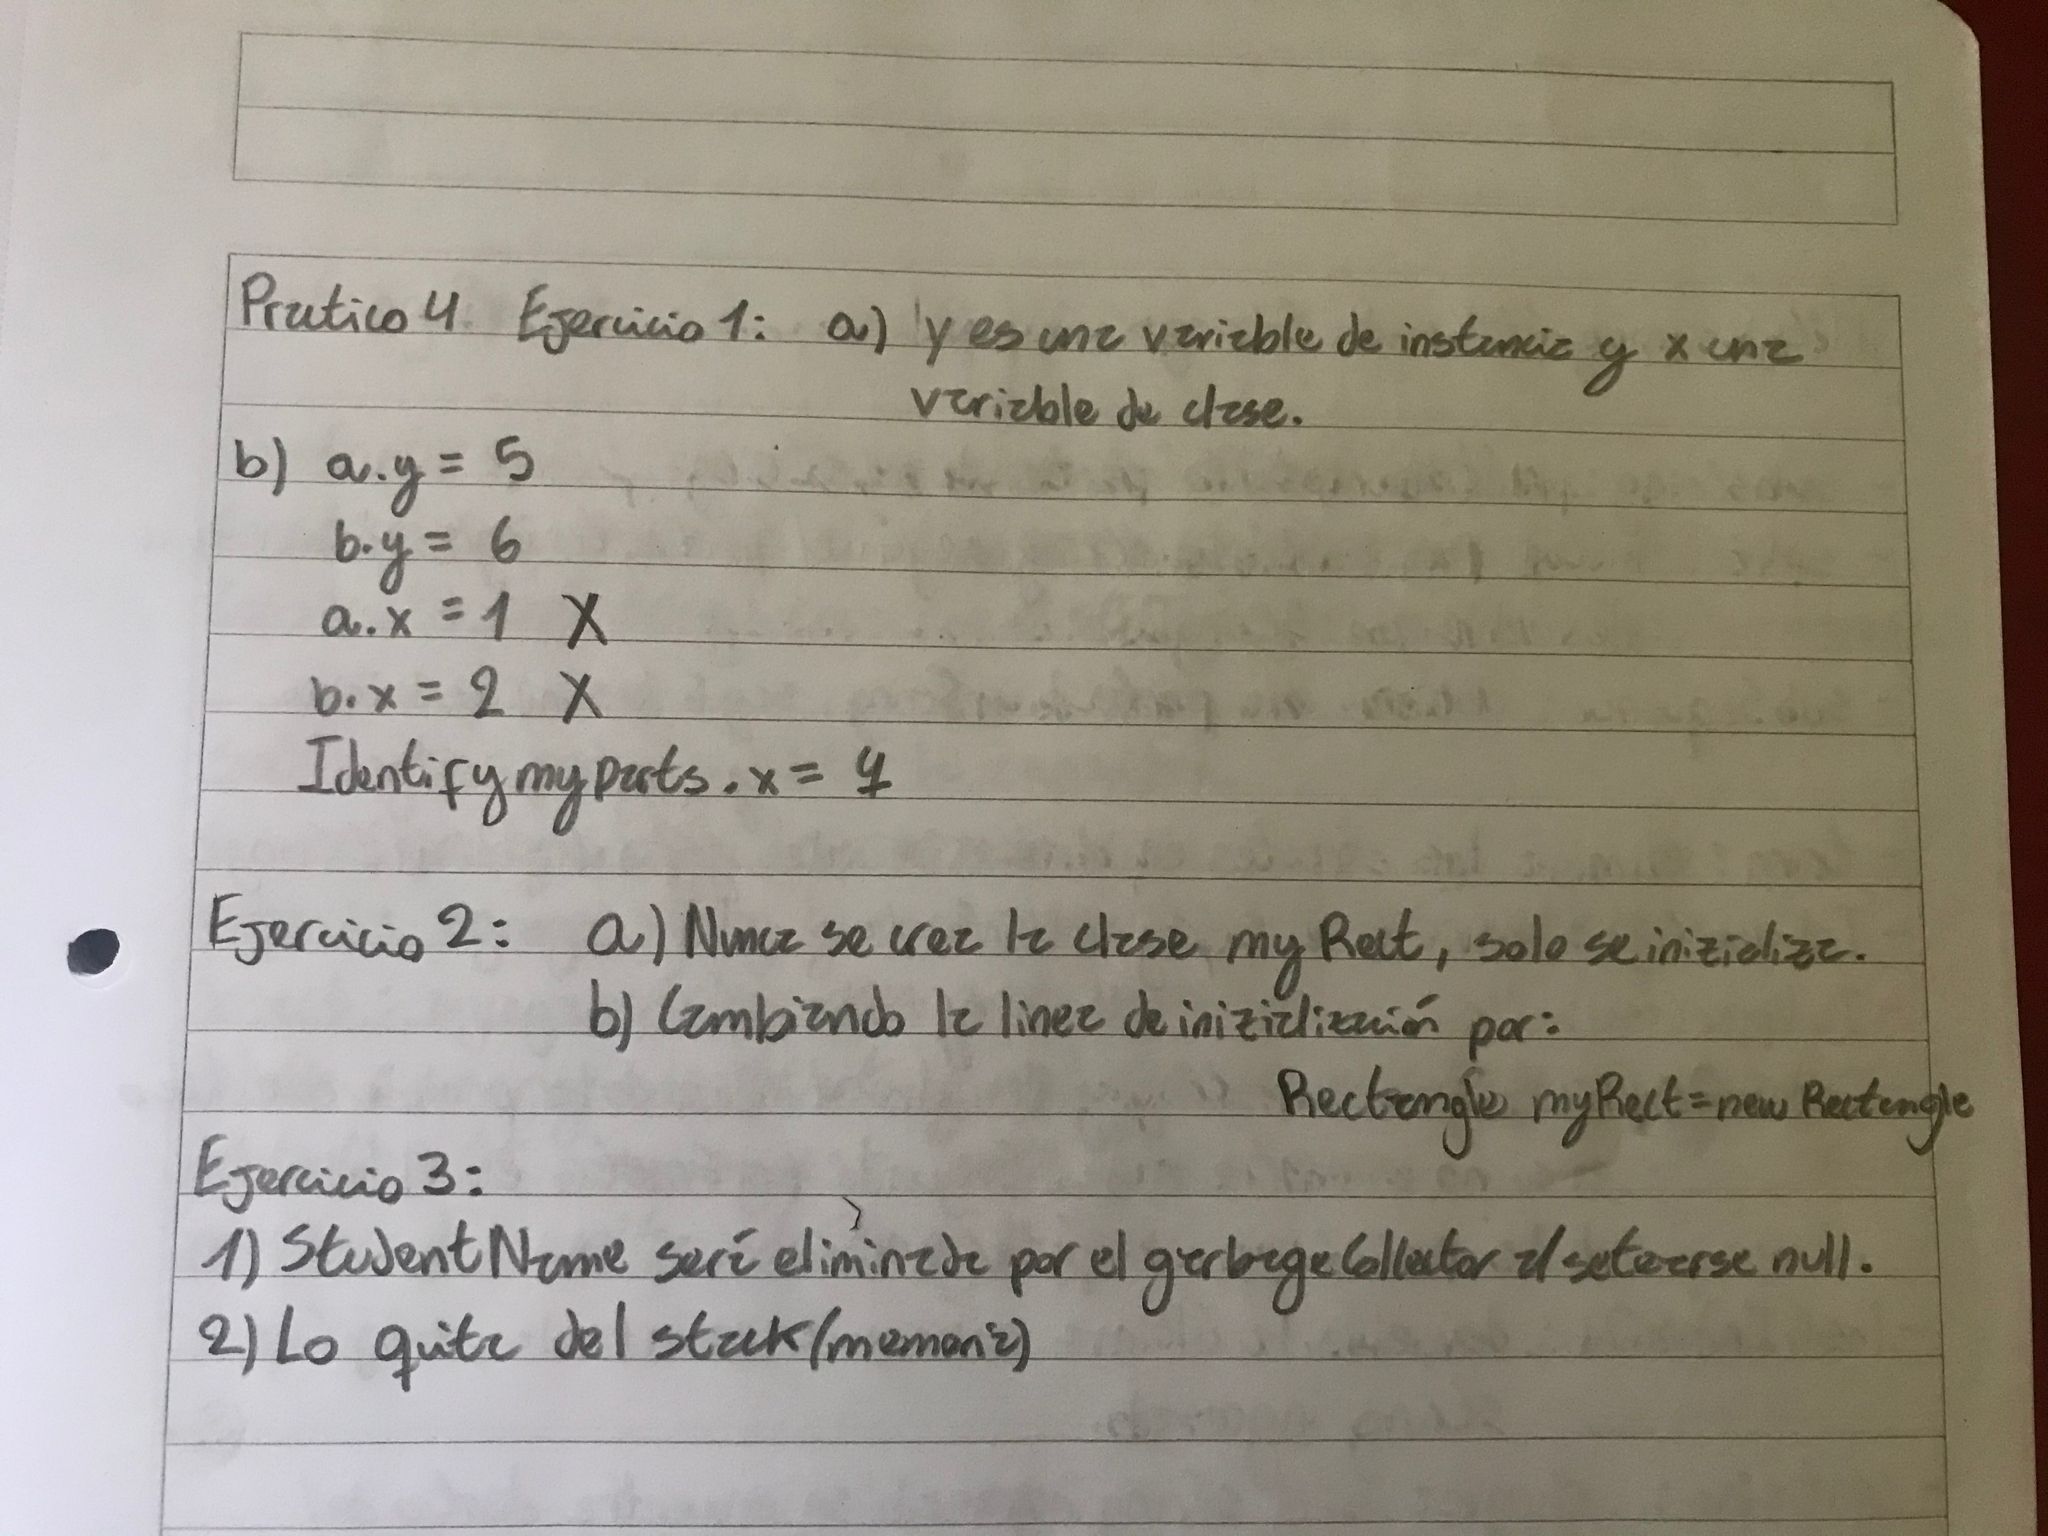 Pratico 4 Ejercicio 1: a) y es una variable de instancia y x una
variable de clase.
b) a.y = 5
b.y = 6
a.x = 1 X
b.x = 2 X
Identifymyparts.x =
Ejercicio 2: a) Nunca se crea la clase myRect, solo se inizializa.
b) Cambiando la linea de inizialización por:
Rectangle myRect=new Rectangle
Ejercicio 3:
1) StudentName será eliminada por el garbageCollector al setearse null.
2) Lo quita del stack (memoria)